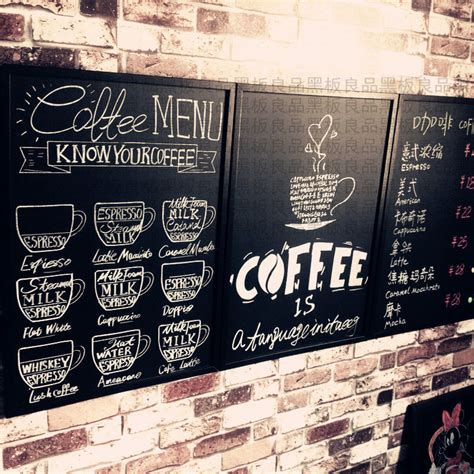 黑板良品黑板良品黑板良品
Coffee MENU
KNOW YOUR COFFEEE
ESPRESSO
Espresso
Steamed
MILK
ESPRESSO
Latte Macciato
Milk Foam
MILK
Caramel
ESPRESSO
Caramel Macchiato
Steamed
MILK
ESPRESSO
Flat White
Milk Foam
MILK
ESPRESSO
Cappuccino
MilkFoam
MILK
ESPRESSO
Doppio
WHISKEY
ESPRESSO
Hot
WATER
ESPRESSO
Americano
MilkFoam
Steamed
MILK
ESPRESSO
Cafe Latte
COFFEE
IS
a language in itself
咖啡 COF
意式浓缩
ESPRESSO
美式
American
¥22
卡布奇诺
Cappuccino
¥25
拿铁
Latte
¥25
焦糖玛奇朵
Caramel Macchiato
¥28
摩卡
Mocha
¥28